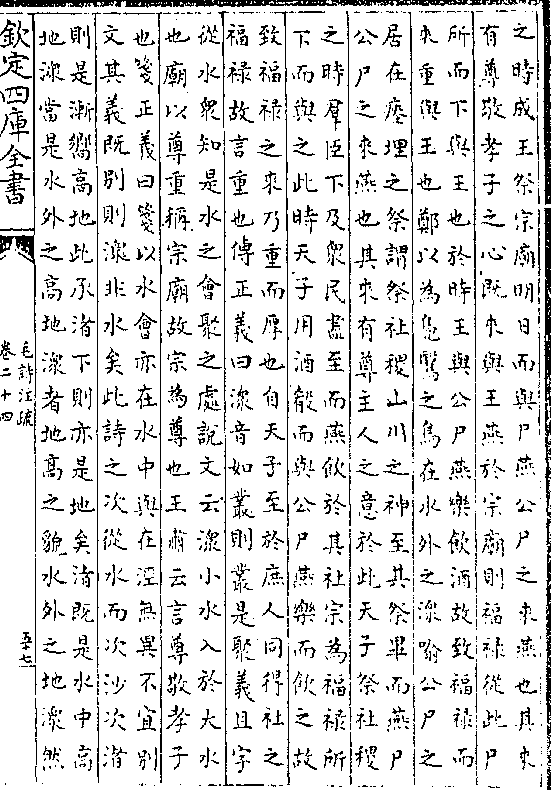 之時成王祭宗廟明日而與尸燕公尸之來燕也其來
有尊敬孝子之心既來與王燕於宗廟則福祿從此尸
所而下與王也於時王與公尸燕樂飲酒故致福祿而
來重與王也鄭以為鳧鷖之鳥在水外之潀喻公尸之
居在瘞埋之祭謂祭社稷山川之神至其祭畢而燕尸
公尸之來燕也其來有尊主人之意於此天子祭社稷
之時羣臣下及衆民盡至而燕飲於其社宗為福祿所
下而與之此時天子用酒殽而與公尸燕樂而飲之故
致福祿之來乃重而厚也自天子至於庶人同得社之
福祿故言重也傳正義曰潀音如叢則叢是聚義且字
從水衆知是水之會聚之處說文云潀小水入於大水
也廟以尊重稱宗廟故宗為尊也王肅云言尊敬孝子
也箋正義曰箋以水會亦在水中與在涇無異不宜別
文其義既別則潀非水矣此詩之次從水而次沙次渚
則是漸嚮高地此承渚下則亦是地矣渚既是水中高
地潀當是水外之高地潀者地高之貌水外之地潀然
欽定四庫全書
毛詩注疏
卷二十四
五十七